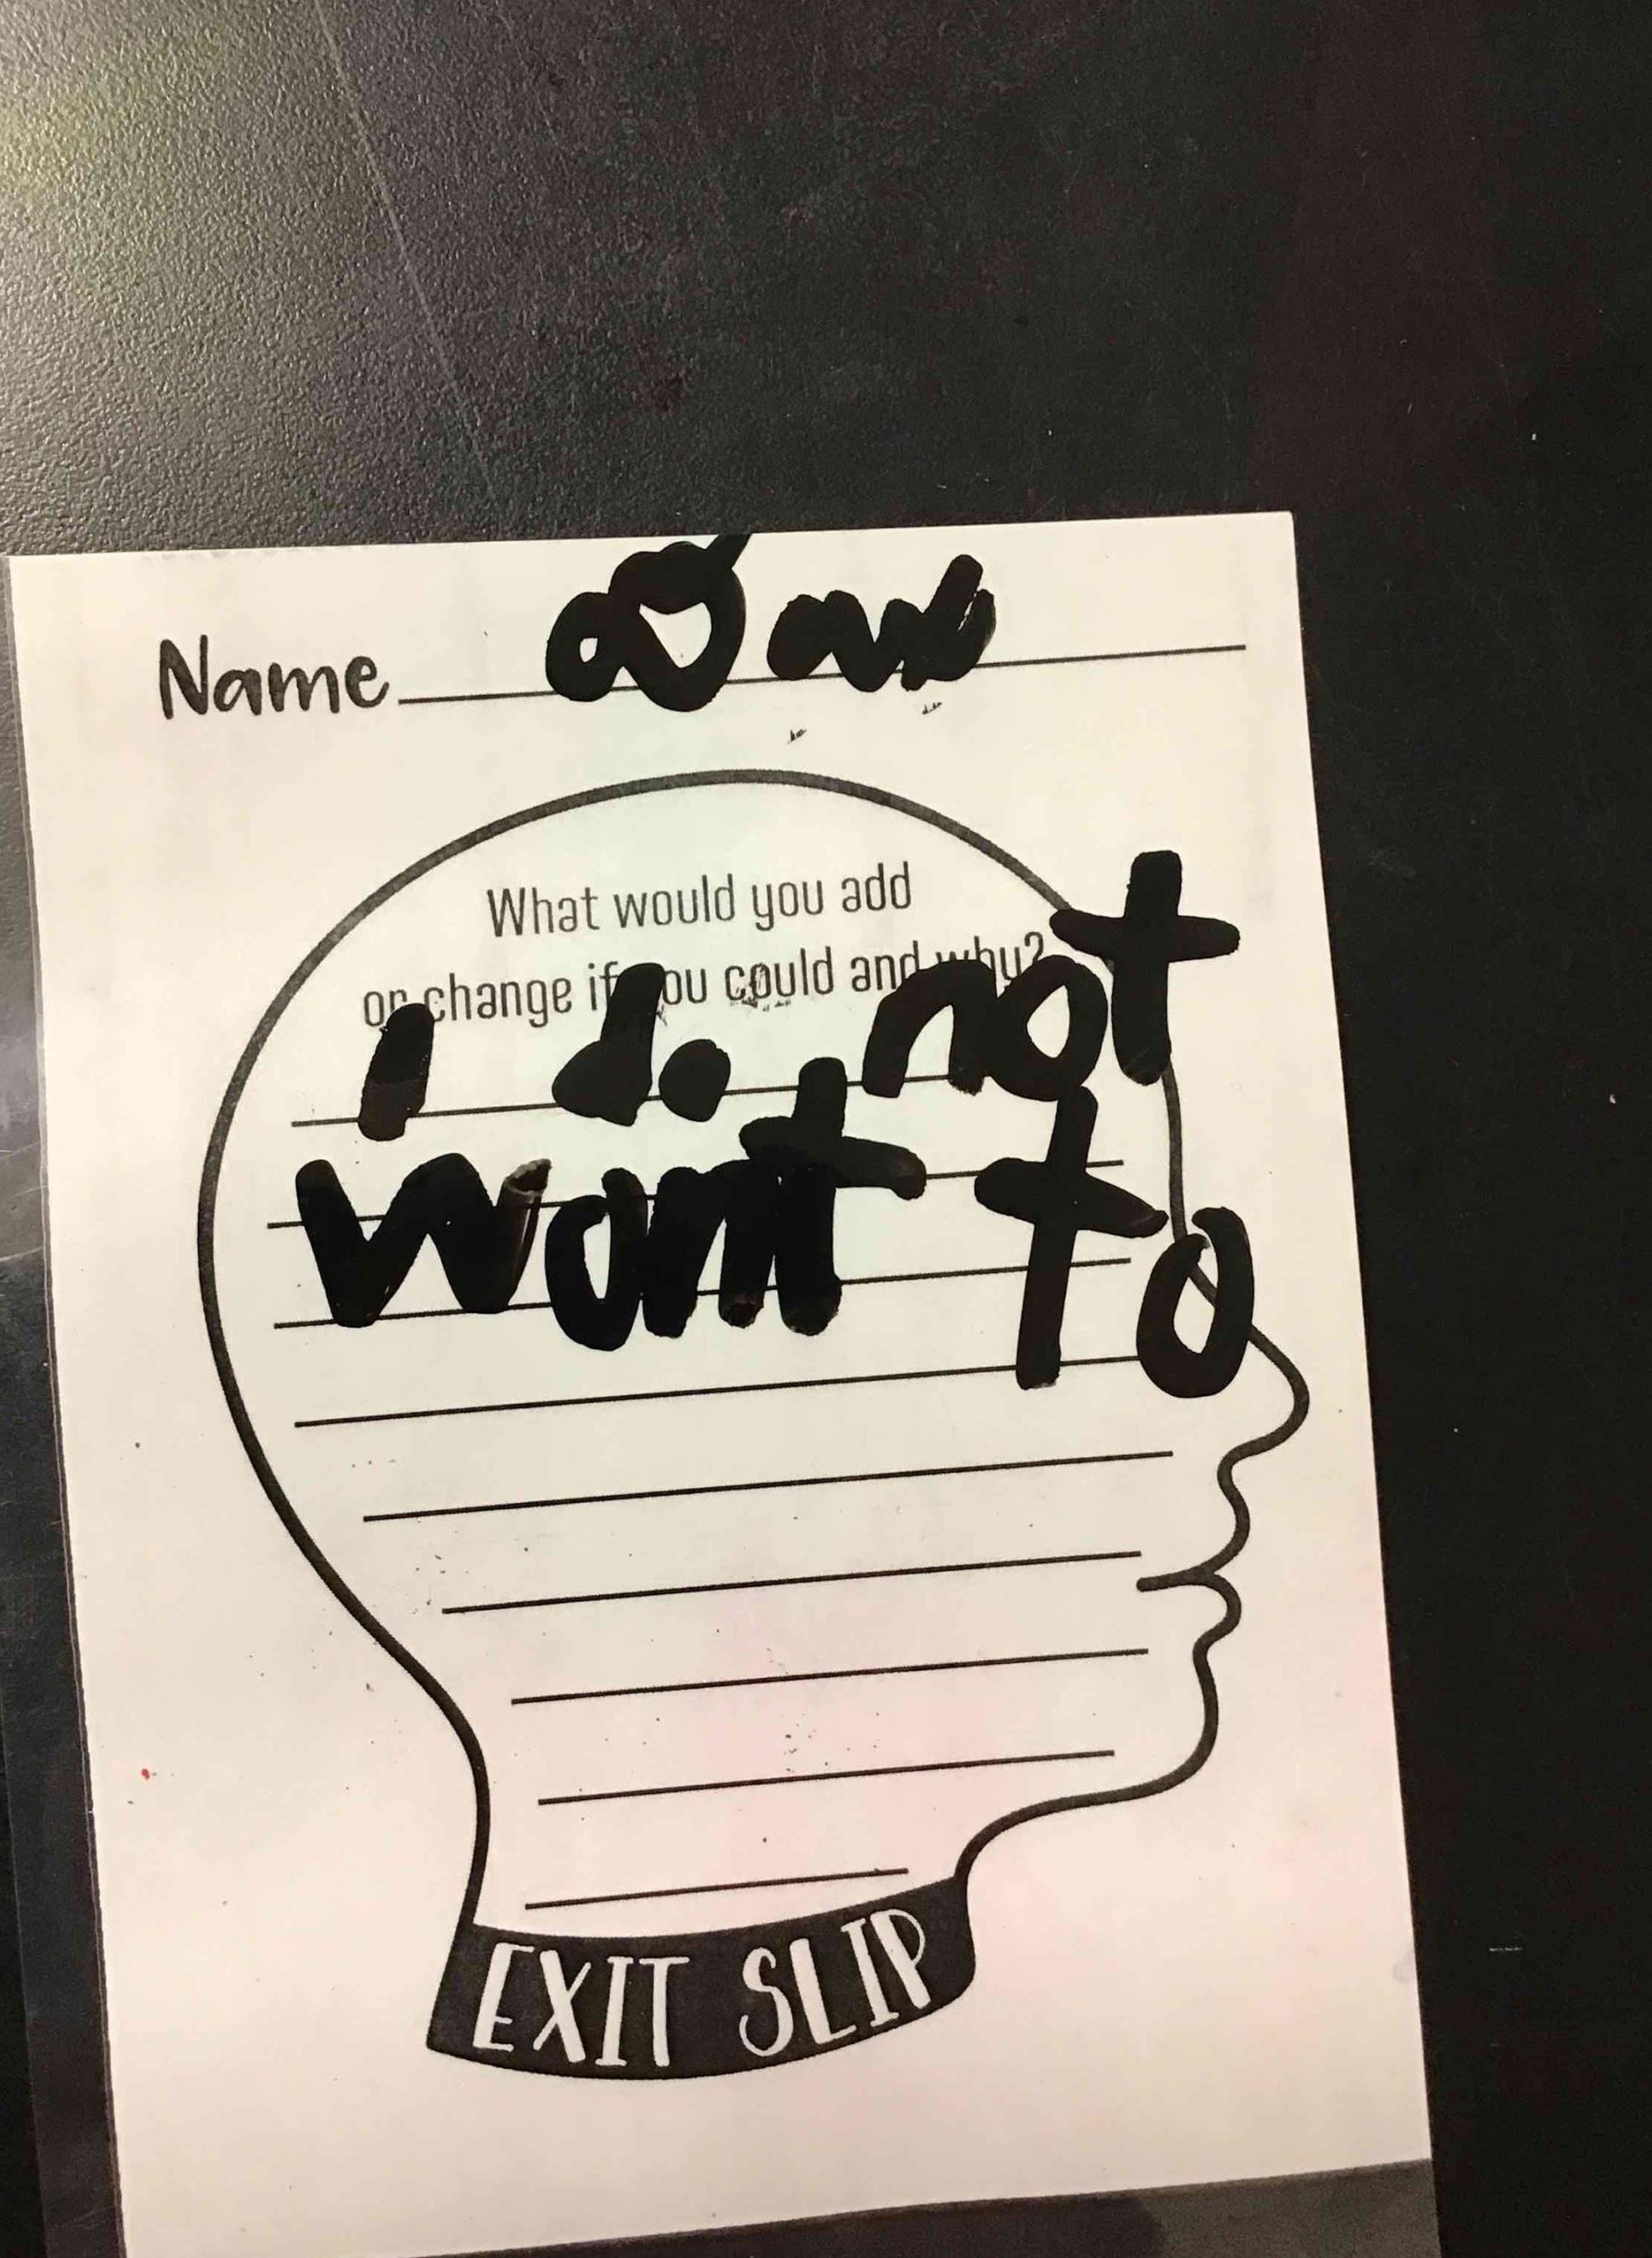 Name
What would you add
or change if you could and why?
I do not
want to
EXIT SLIP